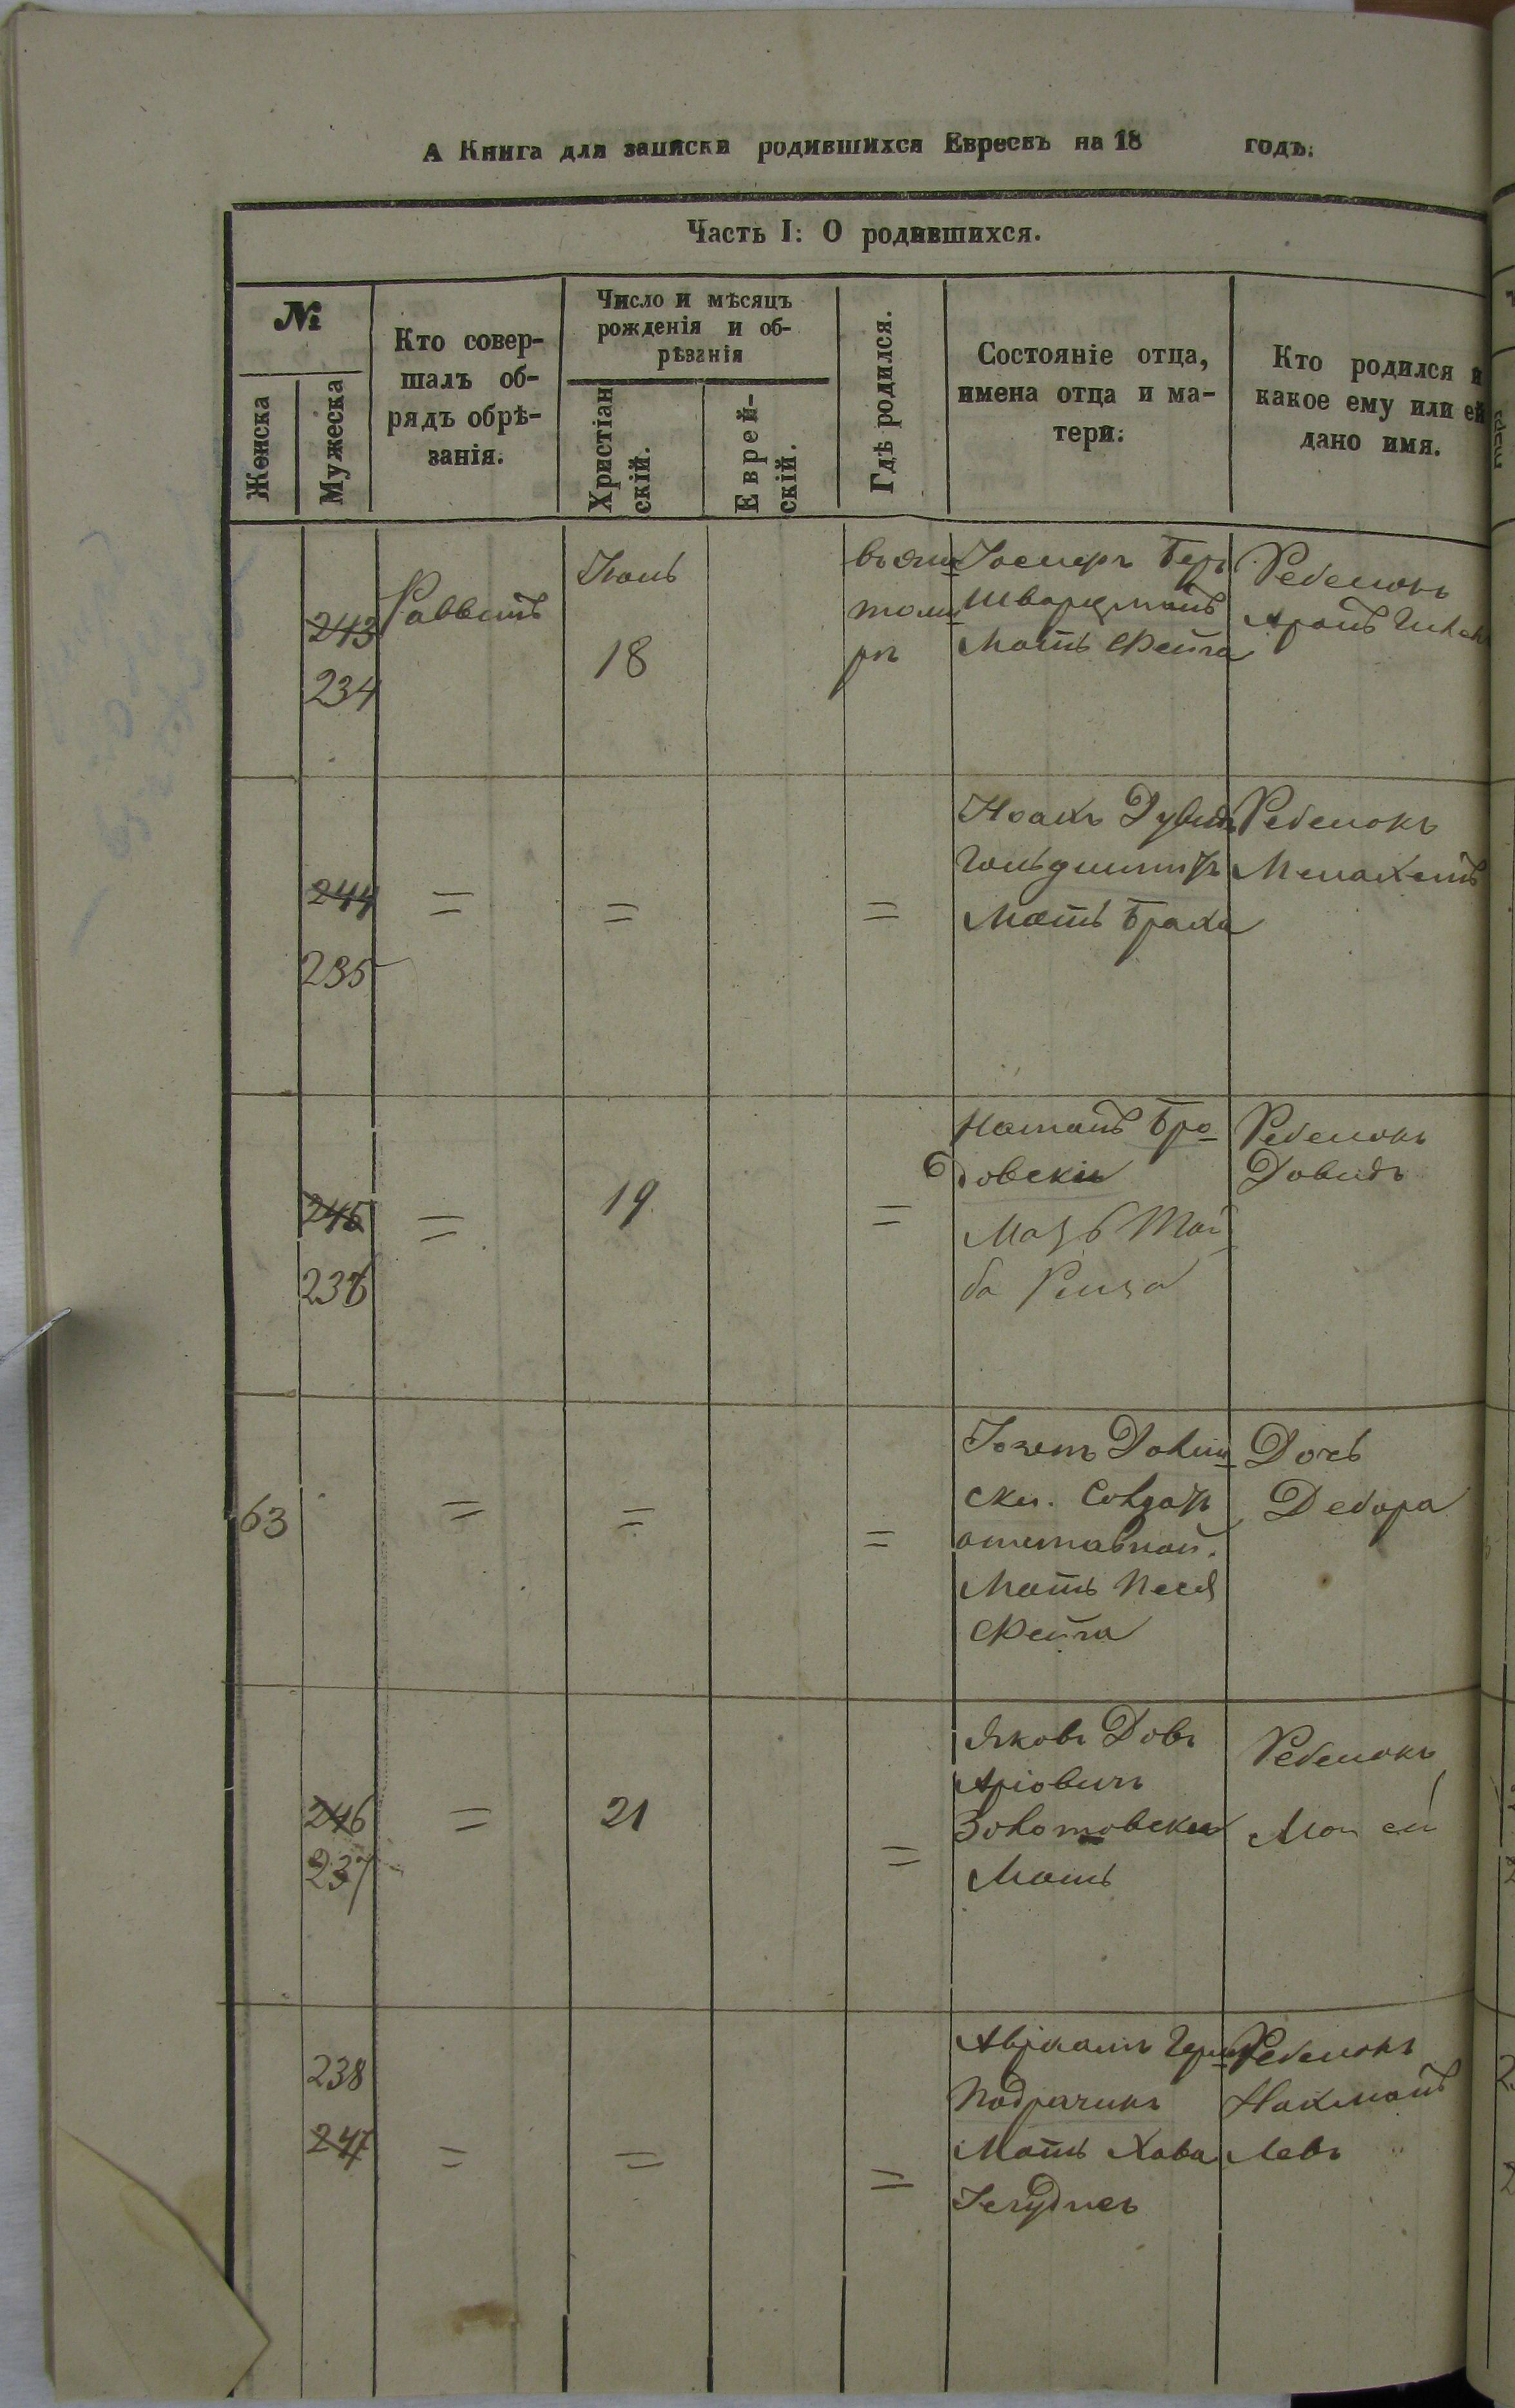 А Книга для записки родившихся Евреевъ на 18 годъ.
Часть I: О родившихся.
№
Женска
Мужеска
Кто совер-
шалъ об-
рядъ обрѣ-
занія.
Число и мѣсяцъ
рожденія и об-
рѣзанія
Христіан
скій.
Еврей-
скій.
Гдѣ родился.
Состояніе отца,
имена отца и ма-
тери.
Кто родился и
какое ему или ей
дано имя.
243
234
Раввинъ
18
Шварцманъ
Мать Фейга
Ребенокъ
Аронъ
244
235
=
=
=
Ноахъ
Гольдшмитъ
Мать Браха
Ребенокъ
Менахемъ
245
236
=
19
=
Натанъ Бро
довски
Мать Тай
ба Рейза
Ребенокъ
Довидъ
63
=
=
=
ски. Солдатъ
отставной.
Мать Песя
Фейга
Дочь
Дебора
246
237
=
21
=
Яковъ Довъ
Аріовичъ
Золотовски
Мать
Ребенокъ
Мои сей
238
247
=
=
=
Аврaамъ
Подрячикъ
Мать Хава
Ребенокъ
Нахманъ
Левъ